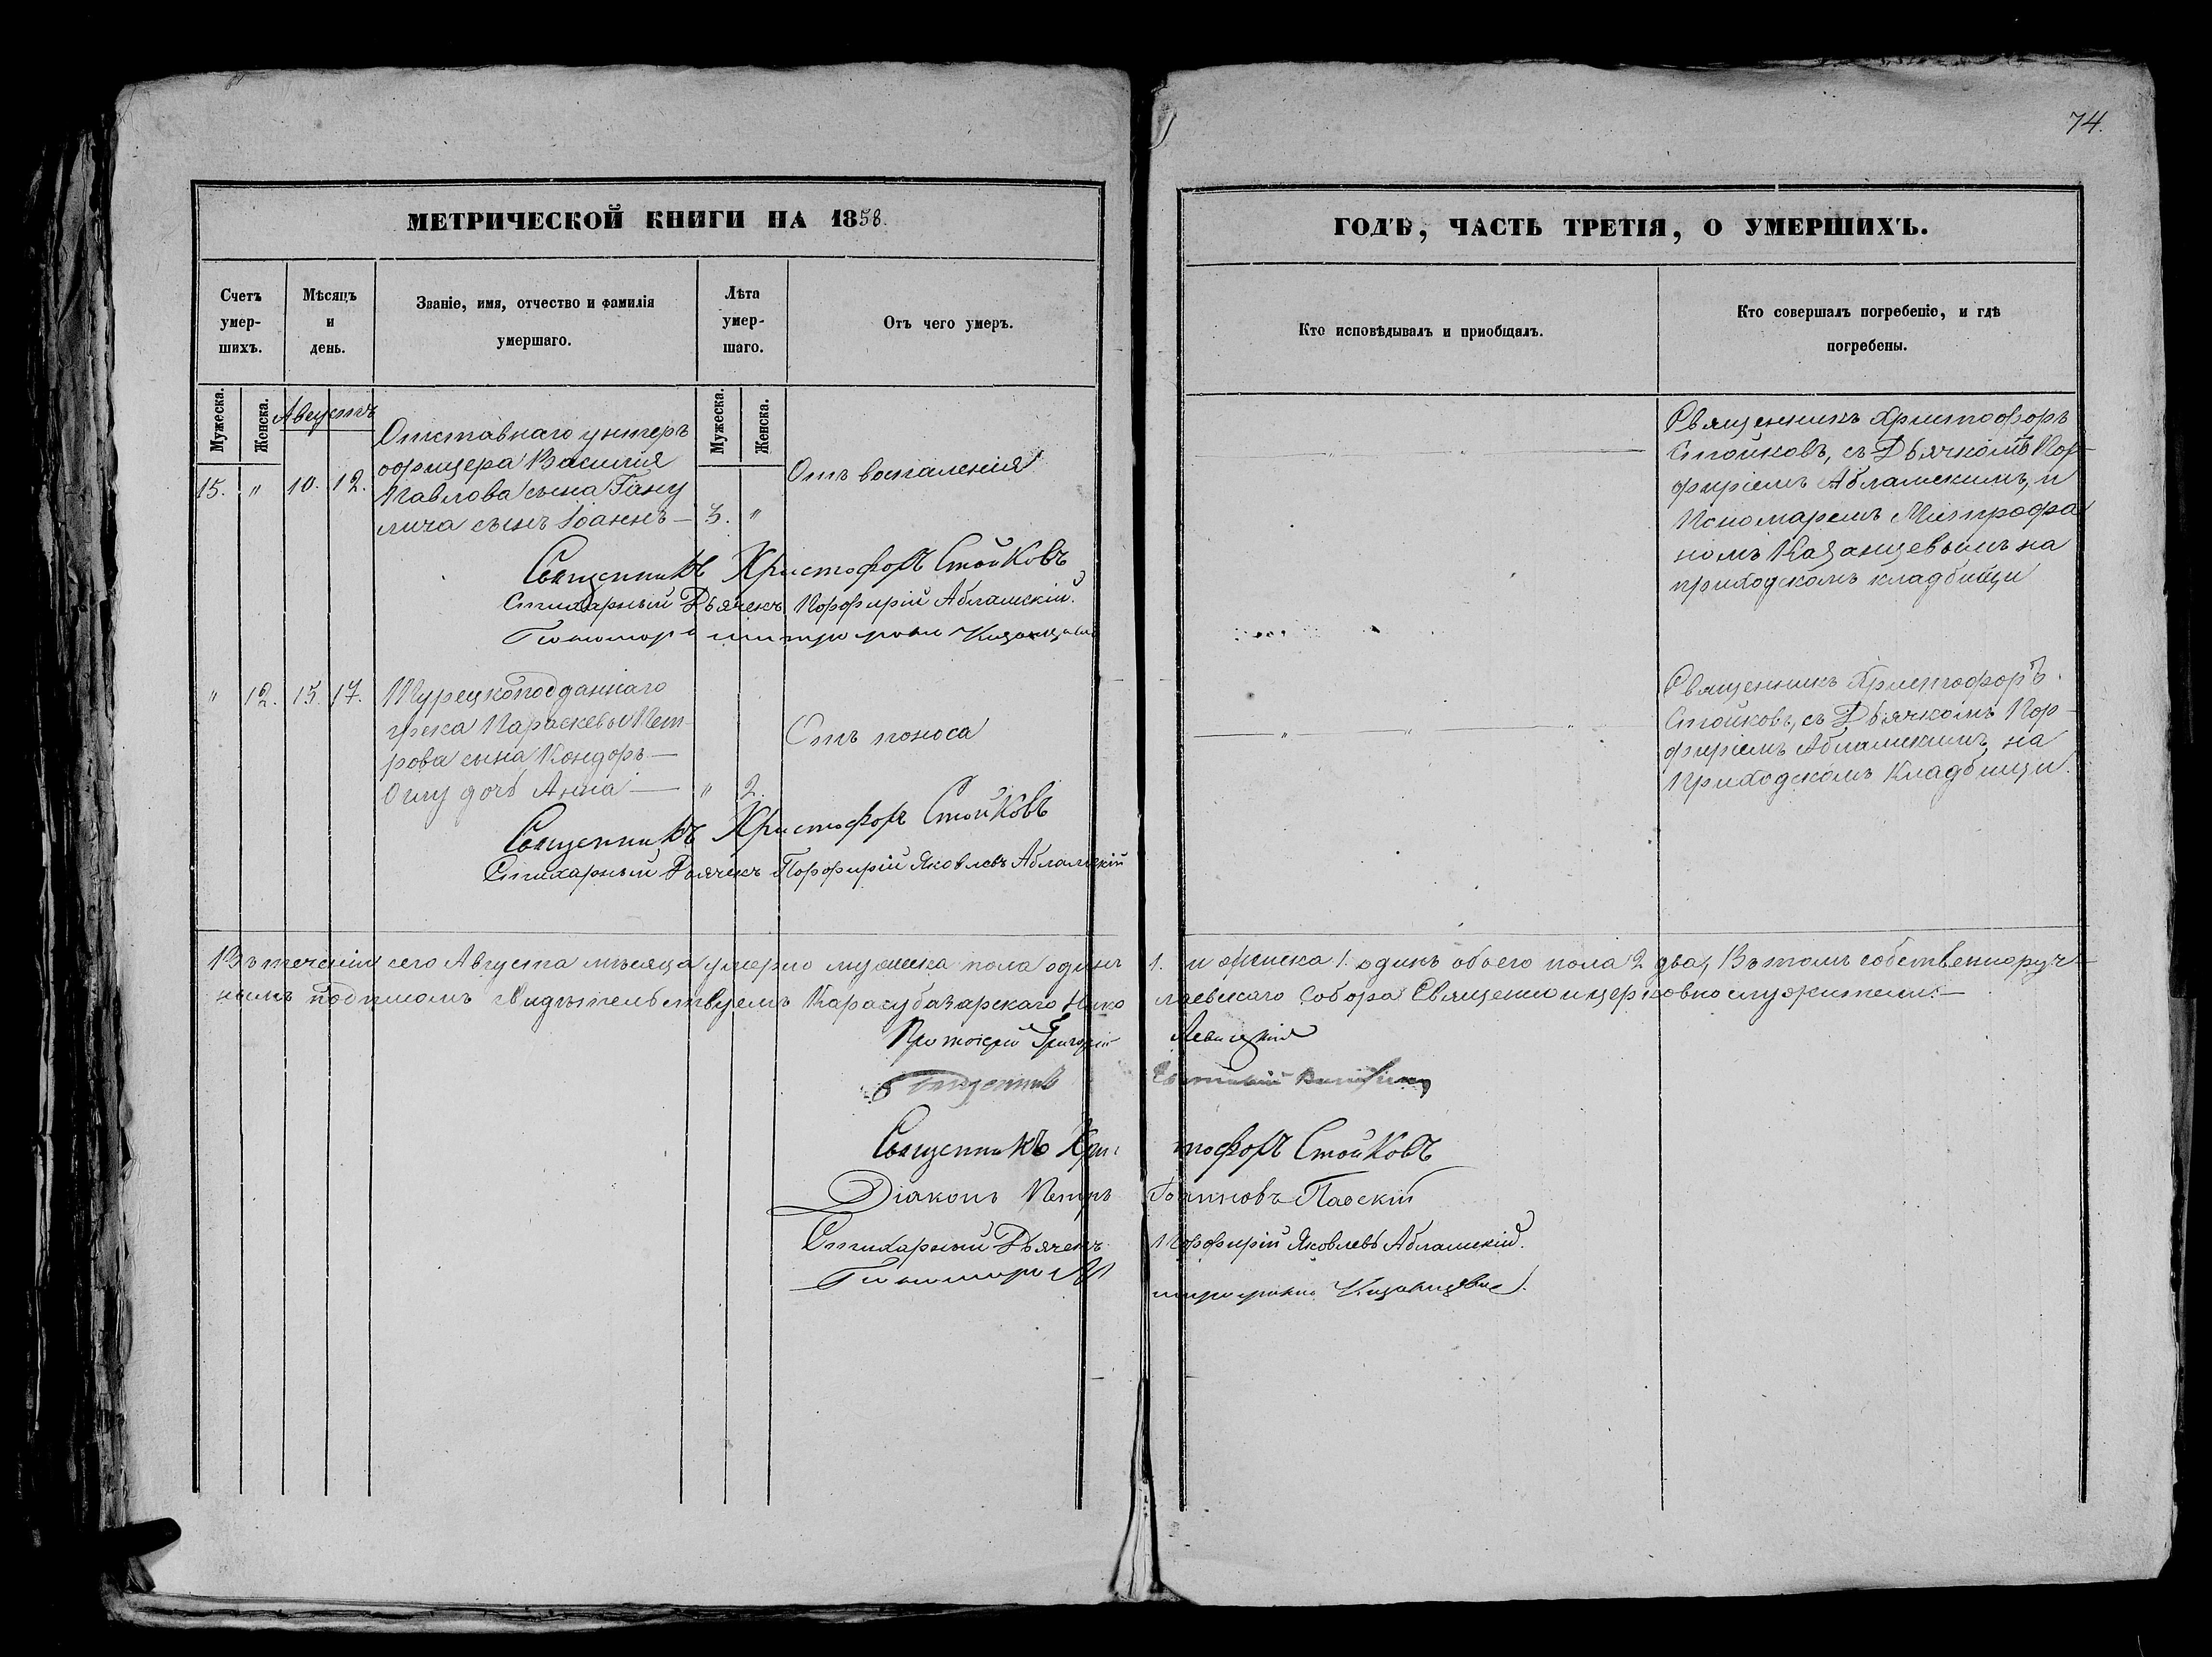 74.
МЕТРИЧЕСКОЙ КНИГИ НА 1858.
ГОДЪ, ЧАСТЬ ТРЕТІЯ, О УМЕРШИХЪ.
Счетъ умер-шихъ.
Мѣсяцъ и день.
Званіе, имя, отчество и фамилія умершаго.
Лѣта умер-шаго.
Отъ чего умеръ.
Кто исповѣдывалъ и приобщалъ.
Кто совершалъ погребеніе, и гдѣ погребены.
Мужеска.
Женска.
Мужеска.
Женска.
Августъ
15. " 10. 12.
Отставнаго унтеръ
офицера Василія
Павлова сына Гану
лича сынъ Іоаннъ —
3. "
Отъ воспаленія
Священникъ Христофоръ
Стойковъ, съ Дьячкомъ Пор-
фиріемъ Абламскимъ, и
Пономаремъ Митрофа
номъ Казанцевымъ на
приходскомъ кладбищи
Священникъ Христофоръ Стойковъ
Стихарный Дьячекъ Порфирій Абламскій.
Пономарь Митрофанъ Казанцевъ
" 12. 15. 17.
Турецкоподданнаго
грека Параскевы Пет-
рова сына Кондоръ —
Оглу дочь Анна —
" 2.
Отъ поноса
Священникъ Христофоръ
Стойковъ, съ Дьячкомъ Пор-
фиріемъ Абламскимъ, на
Приходскомъ Кладбищи.
Священникъ Христофоръ Стойковъ
Стихарный Дьячекъ Порфирій Яковлевъ Абламскій
Въ теченіи сего Августа мѣсяца умерло мужеска пола одинъ 1. и женска 1. одинъ обоего пола 2 два, Въ томъ собственноруч-
нымъ подписомъ свидѣтельствуемъ Карасубазарскаго Нико лаевскаго Собора Священно и церковно служители. —
Протоіерей Григорій Левицкій
Священникъ
Священникъ Хрис тофоръ Стойковъ
Діаконъ Петръ Іоанновъ Паескій
Стихарный Дьячекъ Порфирій Яковлевъ Абламскій.
Пономарь Ми трофанъ Казанцевъ.